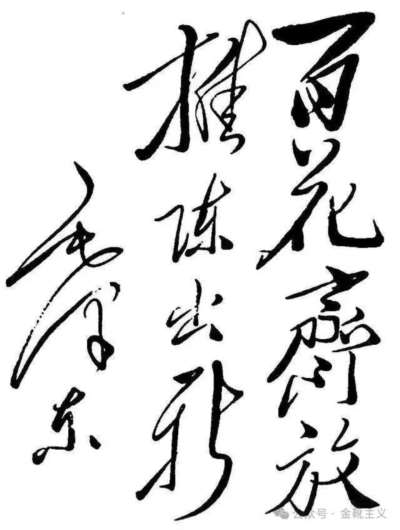 百花齊放
推陈出新
毛泽东
公众号·金靴主义